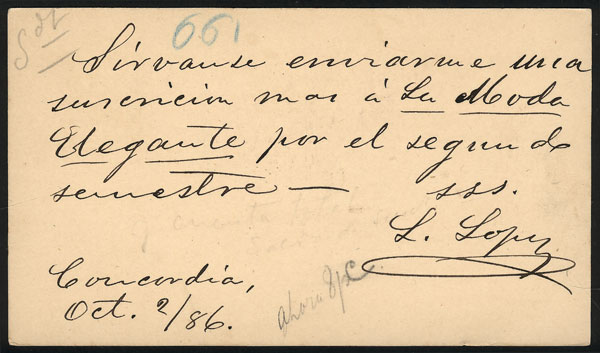 661
Sírvanse enviarme una
suscricion mas á La Moda
Elegante por el segundo
semestre — sss.
L. Lopez
Concordia,
Oct. 2/86.
ahora